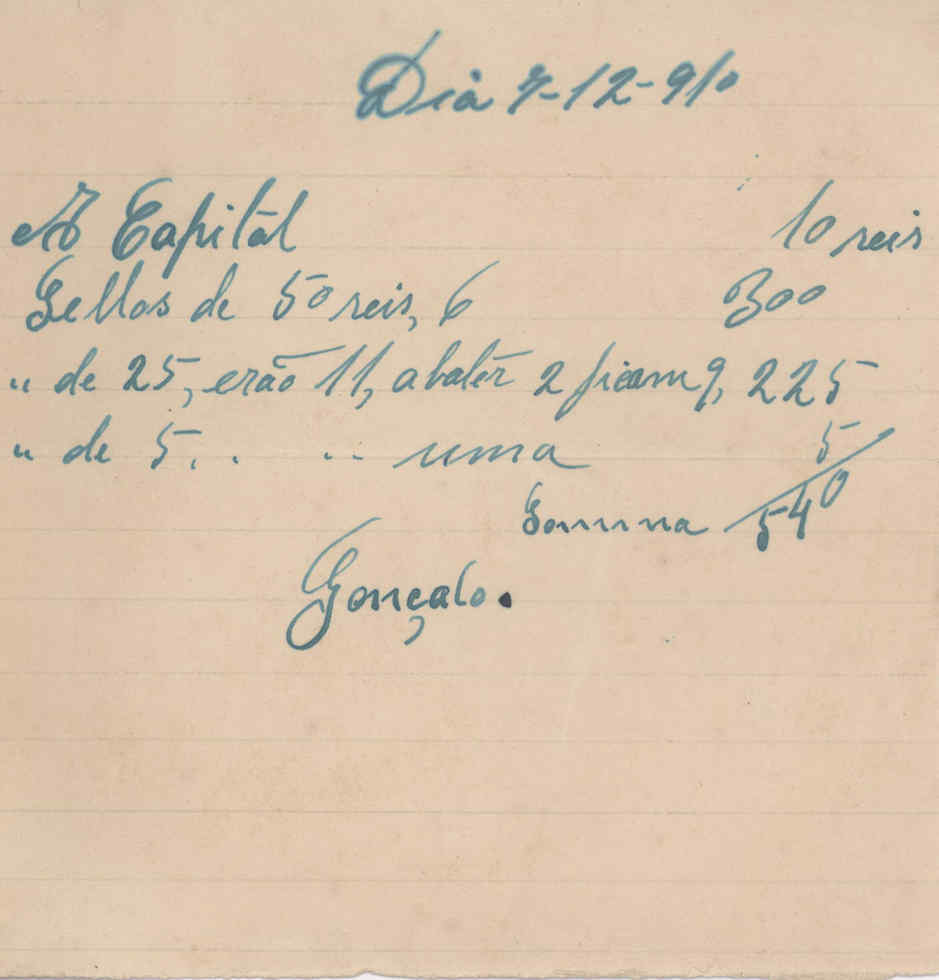 Dia 7-12-910
A Capital 10 reis
Sellos de 50 reis, 6 300
" de 25, erão 11, abatêr 2 ficam 9, 225
" de 5. . . . uma 5
Somma 540
Gonçalo.